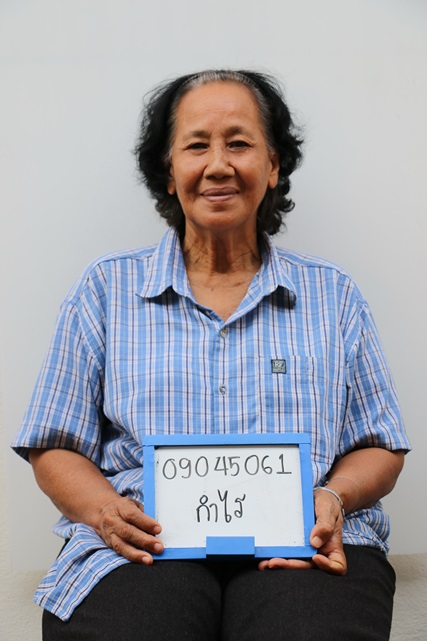 09045061
กำไร